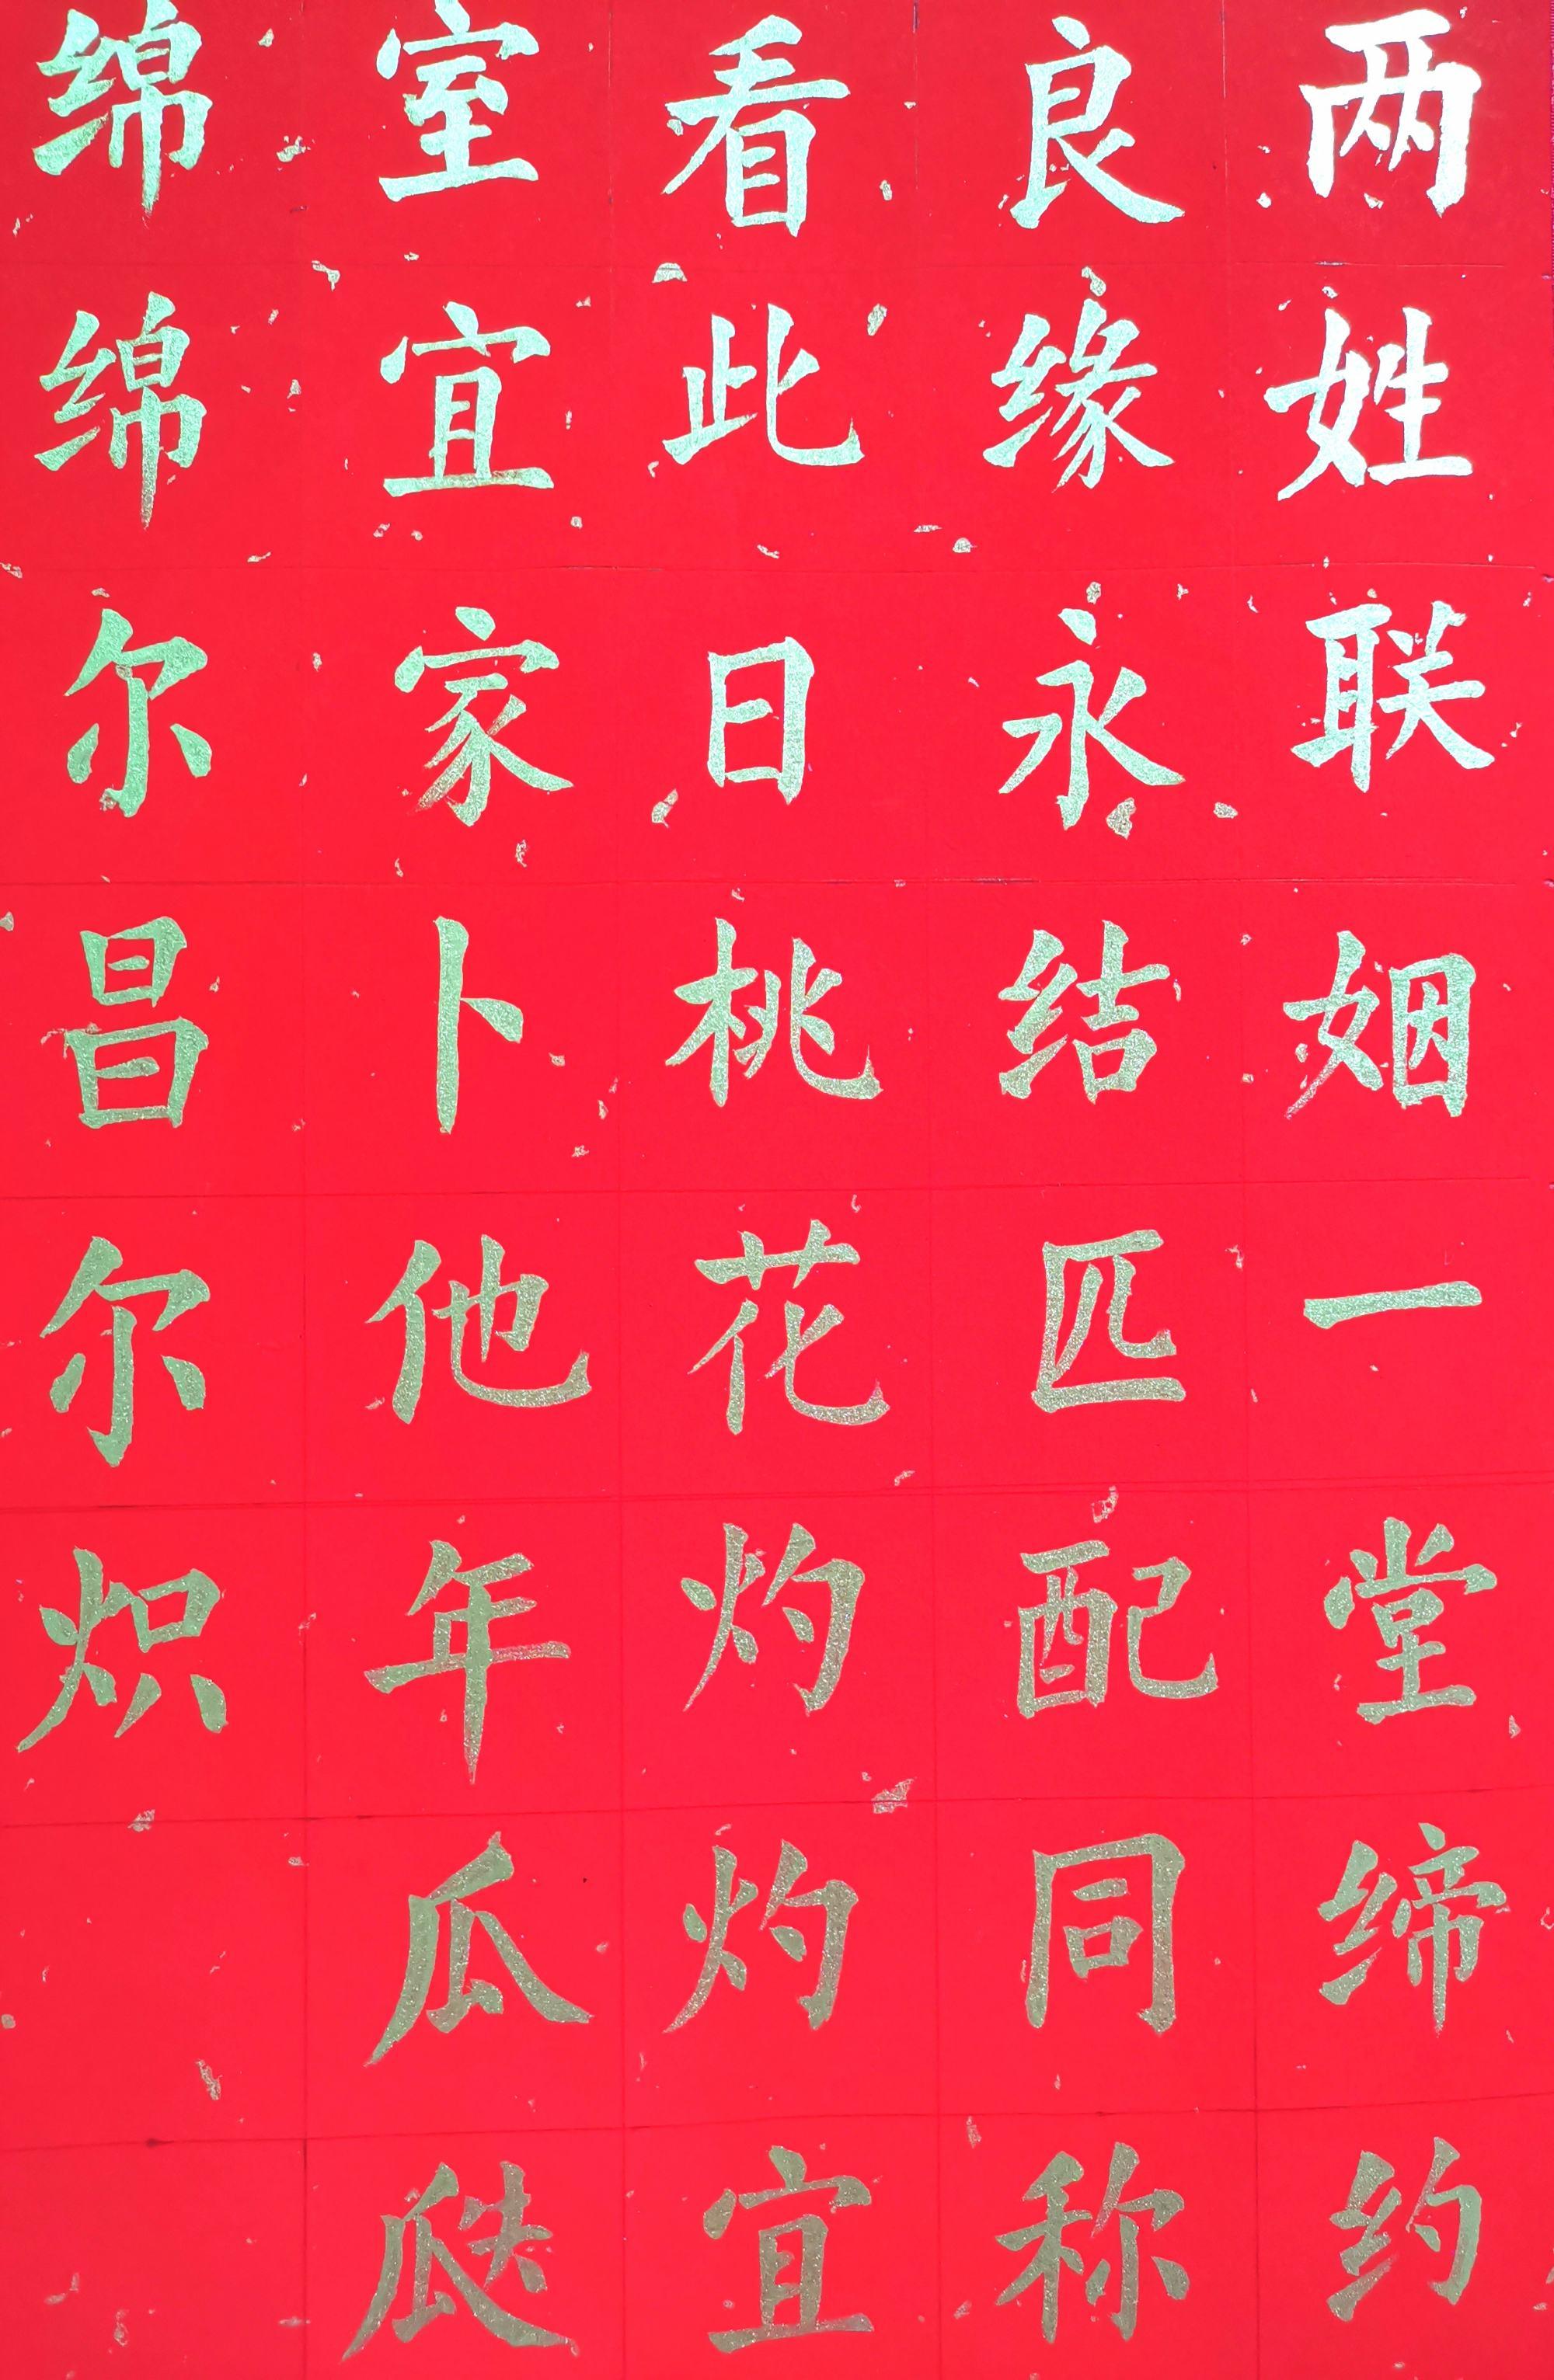 两姓联姻一堂缔约
良缘永结匹配同称
看此日桃花灼灼宜
室宜家卜他年瓜瓞
绵绵尔昌尔炽